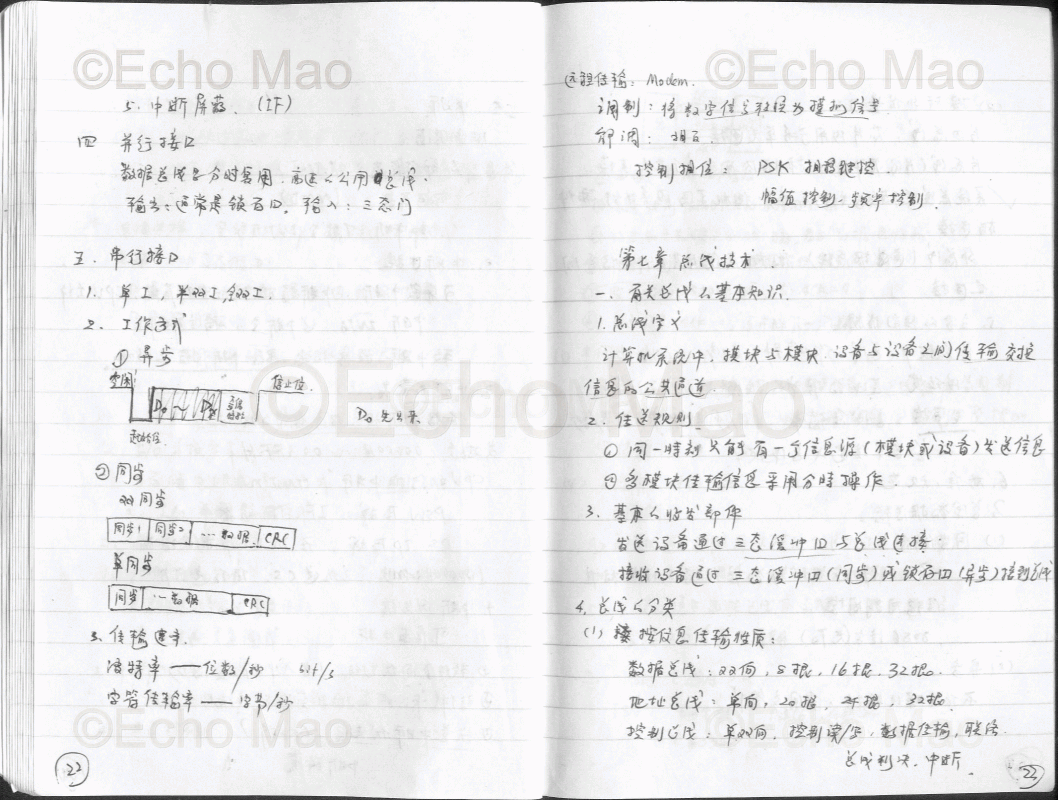 ©Echo Mao
5. 中断屏蔽. (IF)
四 并行接口
数据总线是分时复用,高速人公用总线.
输出:通常是锁存口, 输入:三态门
五. 串行接口
1. 单工, 半双工, 全双工.
2. 工作方式
① 异步
空闲 停止位.
D0 ~ D7
D0 先出来
起始位
②同步
双同步
同步1 同步2 ...数据 CRC
单同步
同步 ...数据 CRC
3. 传输速率.
波特率 —— 位数/秒 bit/s
字符传输率 —— 字节/秒
©Echo Mao
22
©Echo Mao
©Echo Mao
远程传输: Modem.
调制:将数字信号转换为模拟信号
解调: 相反
控制相位: PSK 相移键控
幅值控制、频率控制.
第七章 总线技术.
一、有关总线的基本知识.
1. 总线定义
计算机系统中, 模块与模块, 设备与设备之间传输交换
信息的公共通道
2. 传送规则.
① 同一时刻只能有一个信息源(模块或设备)发送信息
② 多模块传输信息采用分时操作
3. 基本的收发部件
发送设备通过三态缓冲口与总线连接
接收设备通过 三态缓冲口(同步)或锁存口(异步)接到总线
4. 总线的分类
(1) 按信息传输性质:
数据总线:双向, 8根, 16根, 32根.
地址总线:单向, 20根, 24根, 32根.
控制总线:单双向, 控制读/写, 数据传输, 联络
总线判决, 中断.
©Echo Mao
23